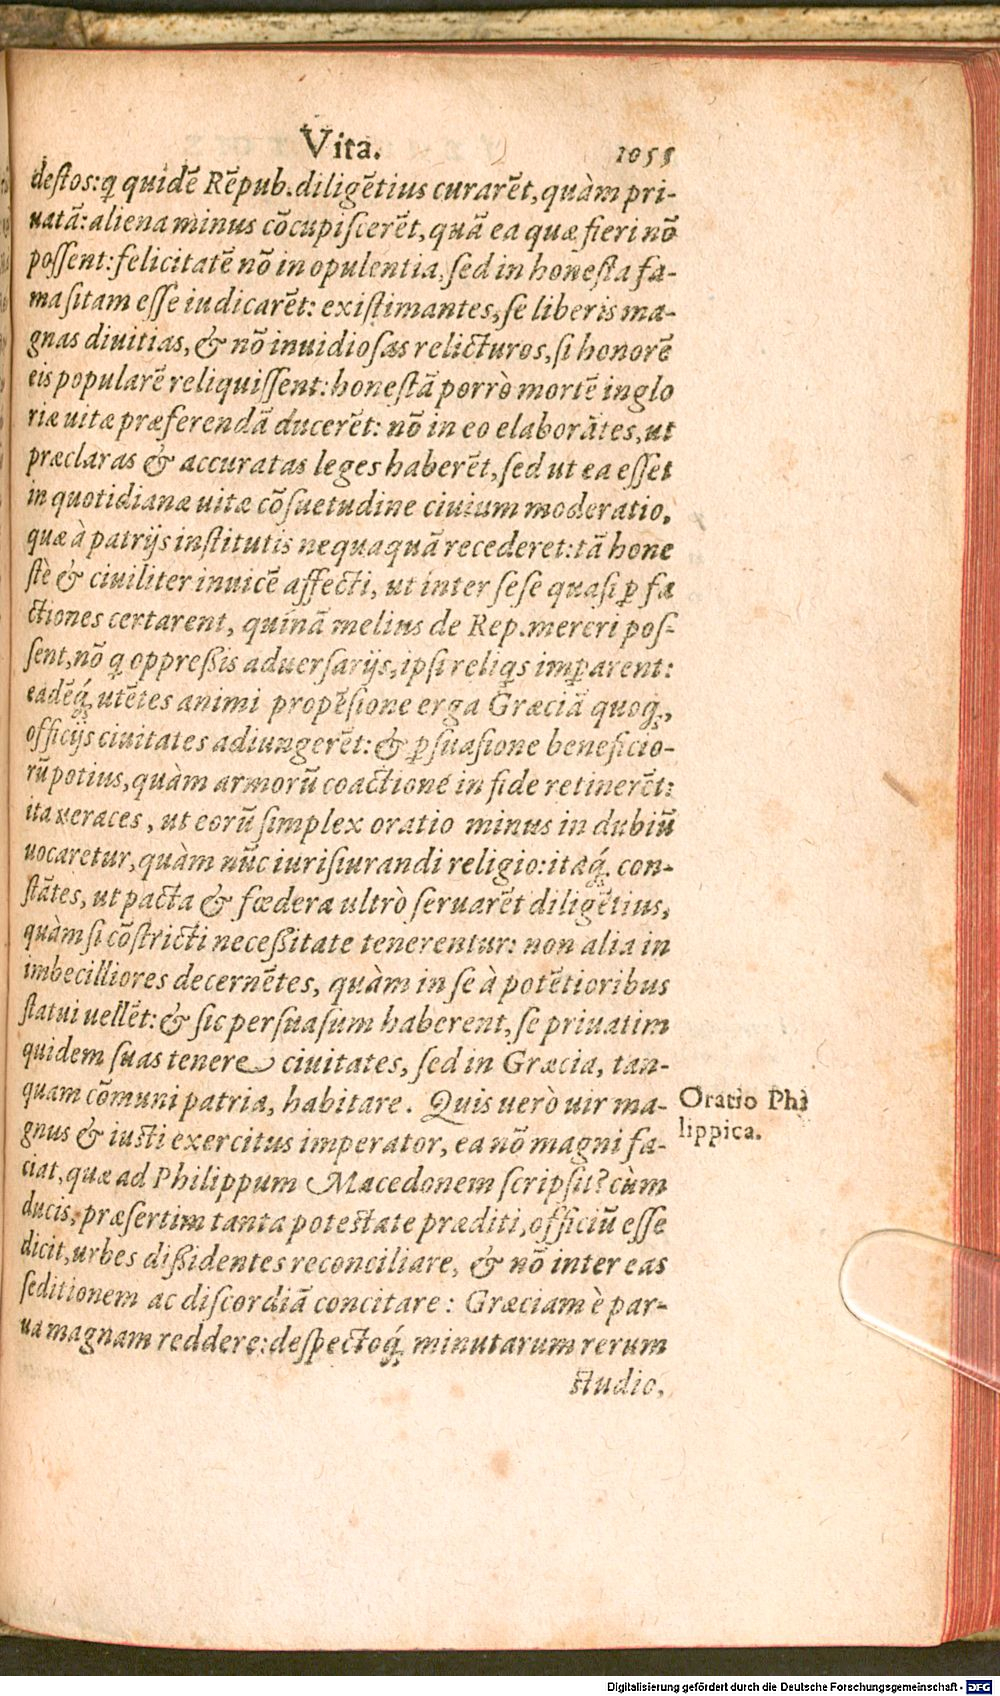 Vita. 1055
destos: ꝗ quidẽ Rẽpub. diligẽtius curarẽt, quàm pri-
uatã: aliena minus cõcupiscerẽt, quã ea quæ fieri nõ
possent: felicitatẽ nõ in opulentia, sed in honesta fa-
ma sitam esse iudicarẽt: existimantes, se liberis ma-
gnas diuitias, & nõ inuidiosas relicturos, si honorẽ
eis popularẽ reliquissent: honestã porrò mortẽ inglo
riæ uitæ præferendã ducerẽt: nõ in eo elaborãtes, ut
præclaras & accuratas leges haberẽt, sed ut ea esset
in quotidianæ uitæ cõsuetudine ciuium moderatio,
quæ à patrijs institutis nequaquã recederet: tã hone
stè & ciuiliter inuicẽ affecti, ut inter sese quasi ꝑ fa
ctiones certarent, quínã melius de Rep. mereri pos-
sent, nõ ꝗ oppreßis aduersarijs, ipsi reliꝗs imꝑarent:
eadẽq́; utẽtes animi propẽsione erga Græciã quoq;,
officijs ciuitates adiungerẽt: & ꝑsuasione beneficio-
rũ potius, quàm armorũ coactione in fide retinerẽt:
ita ueraces, ut eorũ simplex oratio minus in dubiũ
uocaretur, quàm nũc iurisiurandi religio: itaq́; con-
stãtes, ut pacta & fœdera ultrò seruarẽt diligẽtius,
quàm si cõstricti neceßitate tenerentur: non alia in
imbecilliores decernẽtes, quàm in se à potẽtioribus
statui uellẽt: & sic persuasum haberent, se priuatim
quidem suas tenere ciuitates, sed in Græcia, tan-
quam cõmuni patria, habitare. Quis uerò uir ma-
gnus & iusti exercitus imperator, ea nõ magni fa-
ciat, quæ ad Philippum Macedonem scripsit? cùm
ducis, præsertim tanta potestate præditi, officiũ esse
dicit, urbes dißidentes reconciliare, & nõ inter eas
seditionem ac discordiã concitare: Græciam è par-
ua magnam reddere: despectoq́; minutarum rerum
studio,
Oratio Phi
lippica.
Digitalisierung gefördert durch die Deutsche Forschungsgemeinschaft - DFG